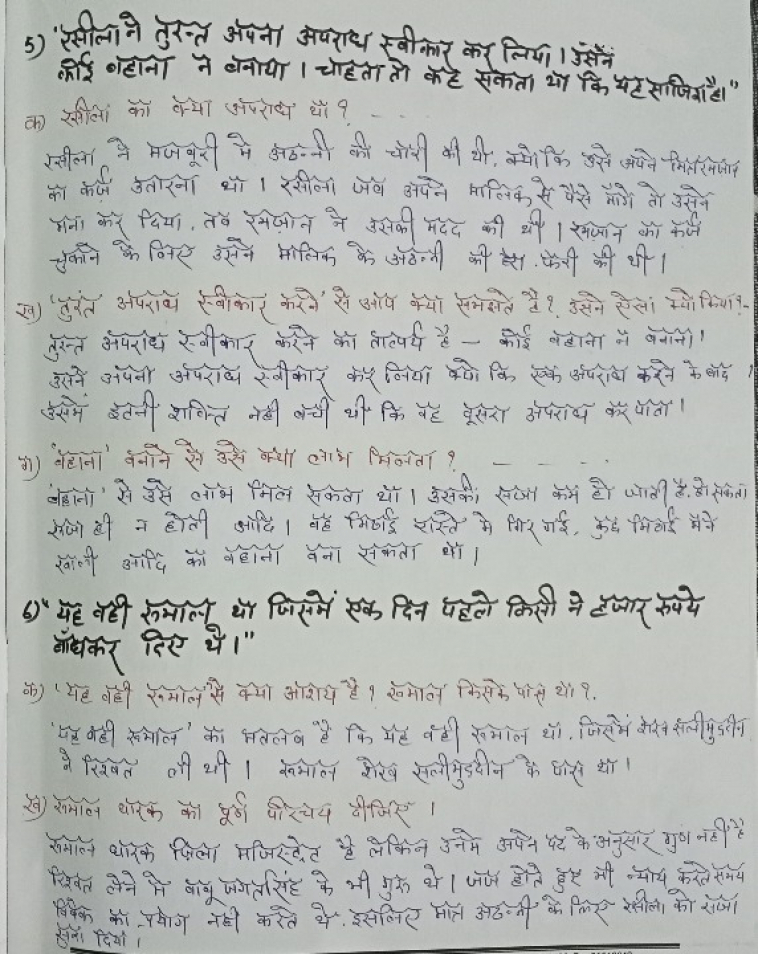 5) "रसीला ने तुरन्त अपना अपराध स्वीकार कर लिया। उसने
कोई बहाना न बनाया। चाहता तो कह सकता था कि यह साजिश है।"
क) रसीला का क्या अपराध था?
रसीला ने मजबूरी मे अठन्नी की चोरी की थी, क्योकि उसे अपने मित्र रमजान
का कर्ज उतारना था। रसीला जब अपने मालिक से पैसे माँगे तो उसने
मना कर दिया, तब रमजान ने उसकी मदद की थी। रमजान का कर्ज
चुकाने के लिए उसने मालिक के अठन्नी की हेरा-फेरी की थी।
ख) 'तुरंत अपराध स्वीकार करने' से आप क्या समझते है? उसने ऐसा क्यो किया?-
तुरन्त अपराध स्वीकार करने का तात्पर्य है - कोई बहाना न बनाना।
उसने अपना अपराध स्वीकार कर लिया क्यो कि एक अपराध करने के बाद
उसमे इतनी शक्ति नही बची थी कि वह दूसरा अपराध कर पाता।
ग) 'बहाना' बनाने से उसे क्या लाभ मिलता? - - - -
'बहाना' से उसे लाभ मिल सकता था। उसकी सजा कम हो जाती है, हो सकता
सजा ही न होती आदि। वह मिठाई रास्ते मे गिर गई, कुछ मिठाई मैने
खाली आदि का बहाना बना सकता था।
6) "यह वही रूमाल था जिसमें एक दिन पहले किसी ने हजार रुपये
बाँधकर दिए थे।"
क) 'यह वही रूमाल' से क्या आशय है? रूमाल किसके पास था?.
'यह वही रूमाल' का मतलब है कि यह वही रूमाल था, जिसमें शेख सलीमुद्दीन
ने रिश्वत ली थी। रूमाल शेख सलीमुद्दीन के पास था।
ख) रूमाल धारक का पूर्ण परिचय दीजिए।
रूमाल धारक जिला मजिस्ट्रेट है लेकिन उनमे अपने पद के अनुसार गुण नही है
रिश्वत लेने मे बाबू जगतसिंह के भी गुरू थे। जज होते हुए भी न्याय करते समय
विवेक का प्रयोग नही करते थे. इसलिए मात्र अठन्नी के लिए रसीला को सजा
सुना दिया।